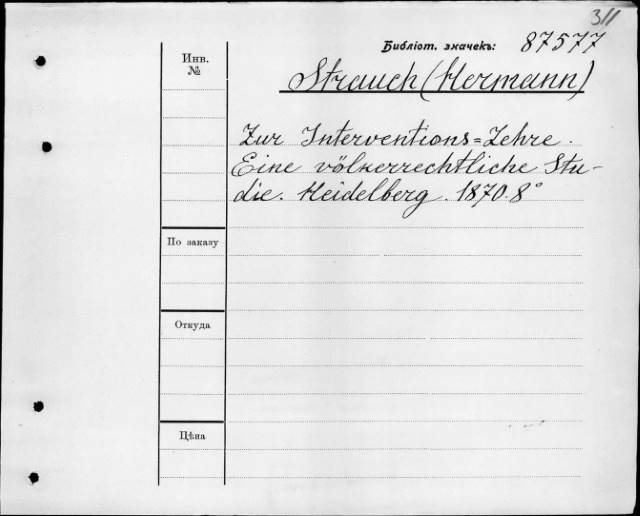 311
Библіот. значекъ: 87577
Инв.
№
Strauch (Hermann)
Zur Interventions=Lehre.
Eine völkerrechtliche Stu-
die. Heidelberg. 1870. 8°
По заказу
Откуда
Цѣна